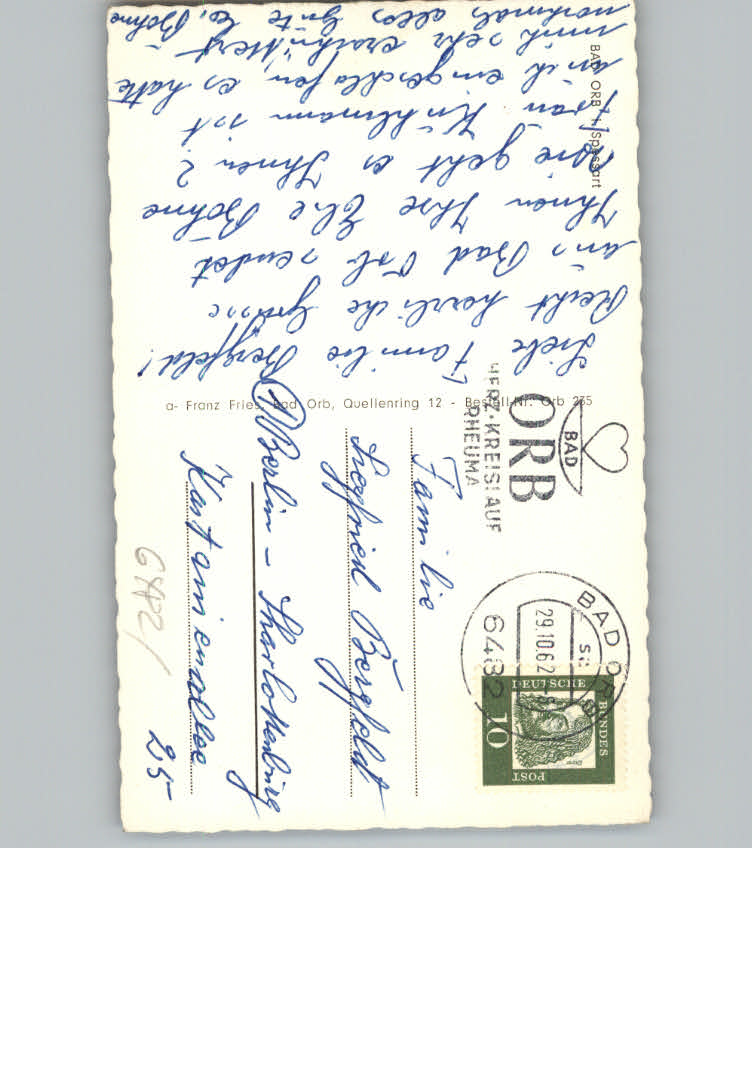 BAD ORB i. Spessart
Liebe Familie Bergfeld!
Recht herzliche Grüsse
aus Bad Orb sendet
Ihnen Ihre Else Böhne
Wie geht es Ihnen?
Frau Kuhlmann ist
eingeschlafen es hatte
mich sehr erschüttert
nochmals alles Gute E. Böhne
a- Franz Fries, Bad Orb, Quellenring 12 - Bestell-Nr. Orb 235
BAD
ORB
HERZ·KREISLAUF
RHEUMA
BAD ORB
29.10.62
6482
DEUTSCHE
BUNDES
POST
10
Familie
Siegfried Bergfeld
(1) Berlin - Charlottenburg
Kastanienallee
25